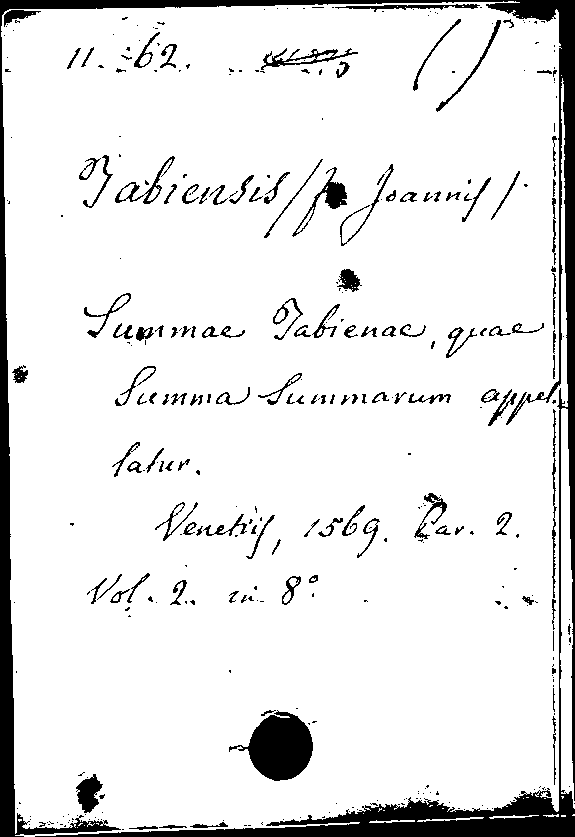 11. 62. ( )
Tabiensis / fr. Joannis /.
Summae Tabienae, quae
Summa Summarum appel-
latur.
Venetiis, 1569. Par. 2.
Vol. 2. in 8°.